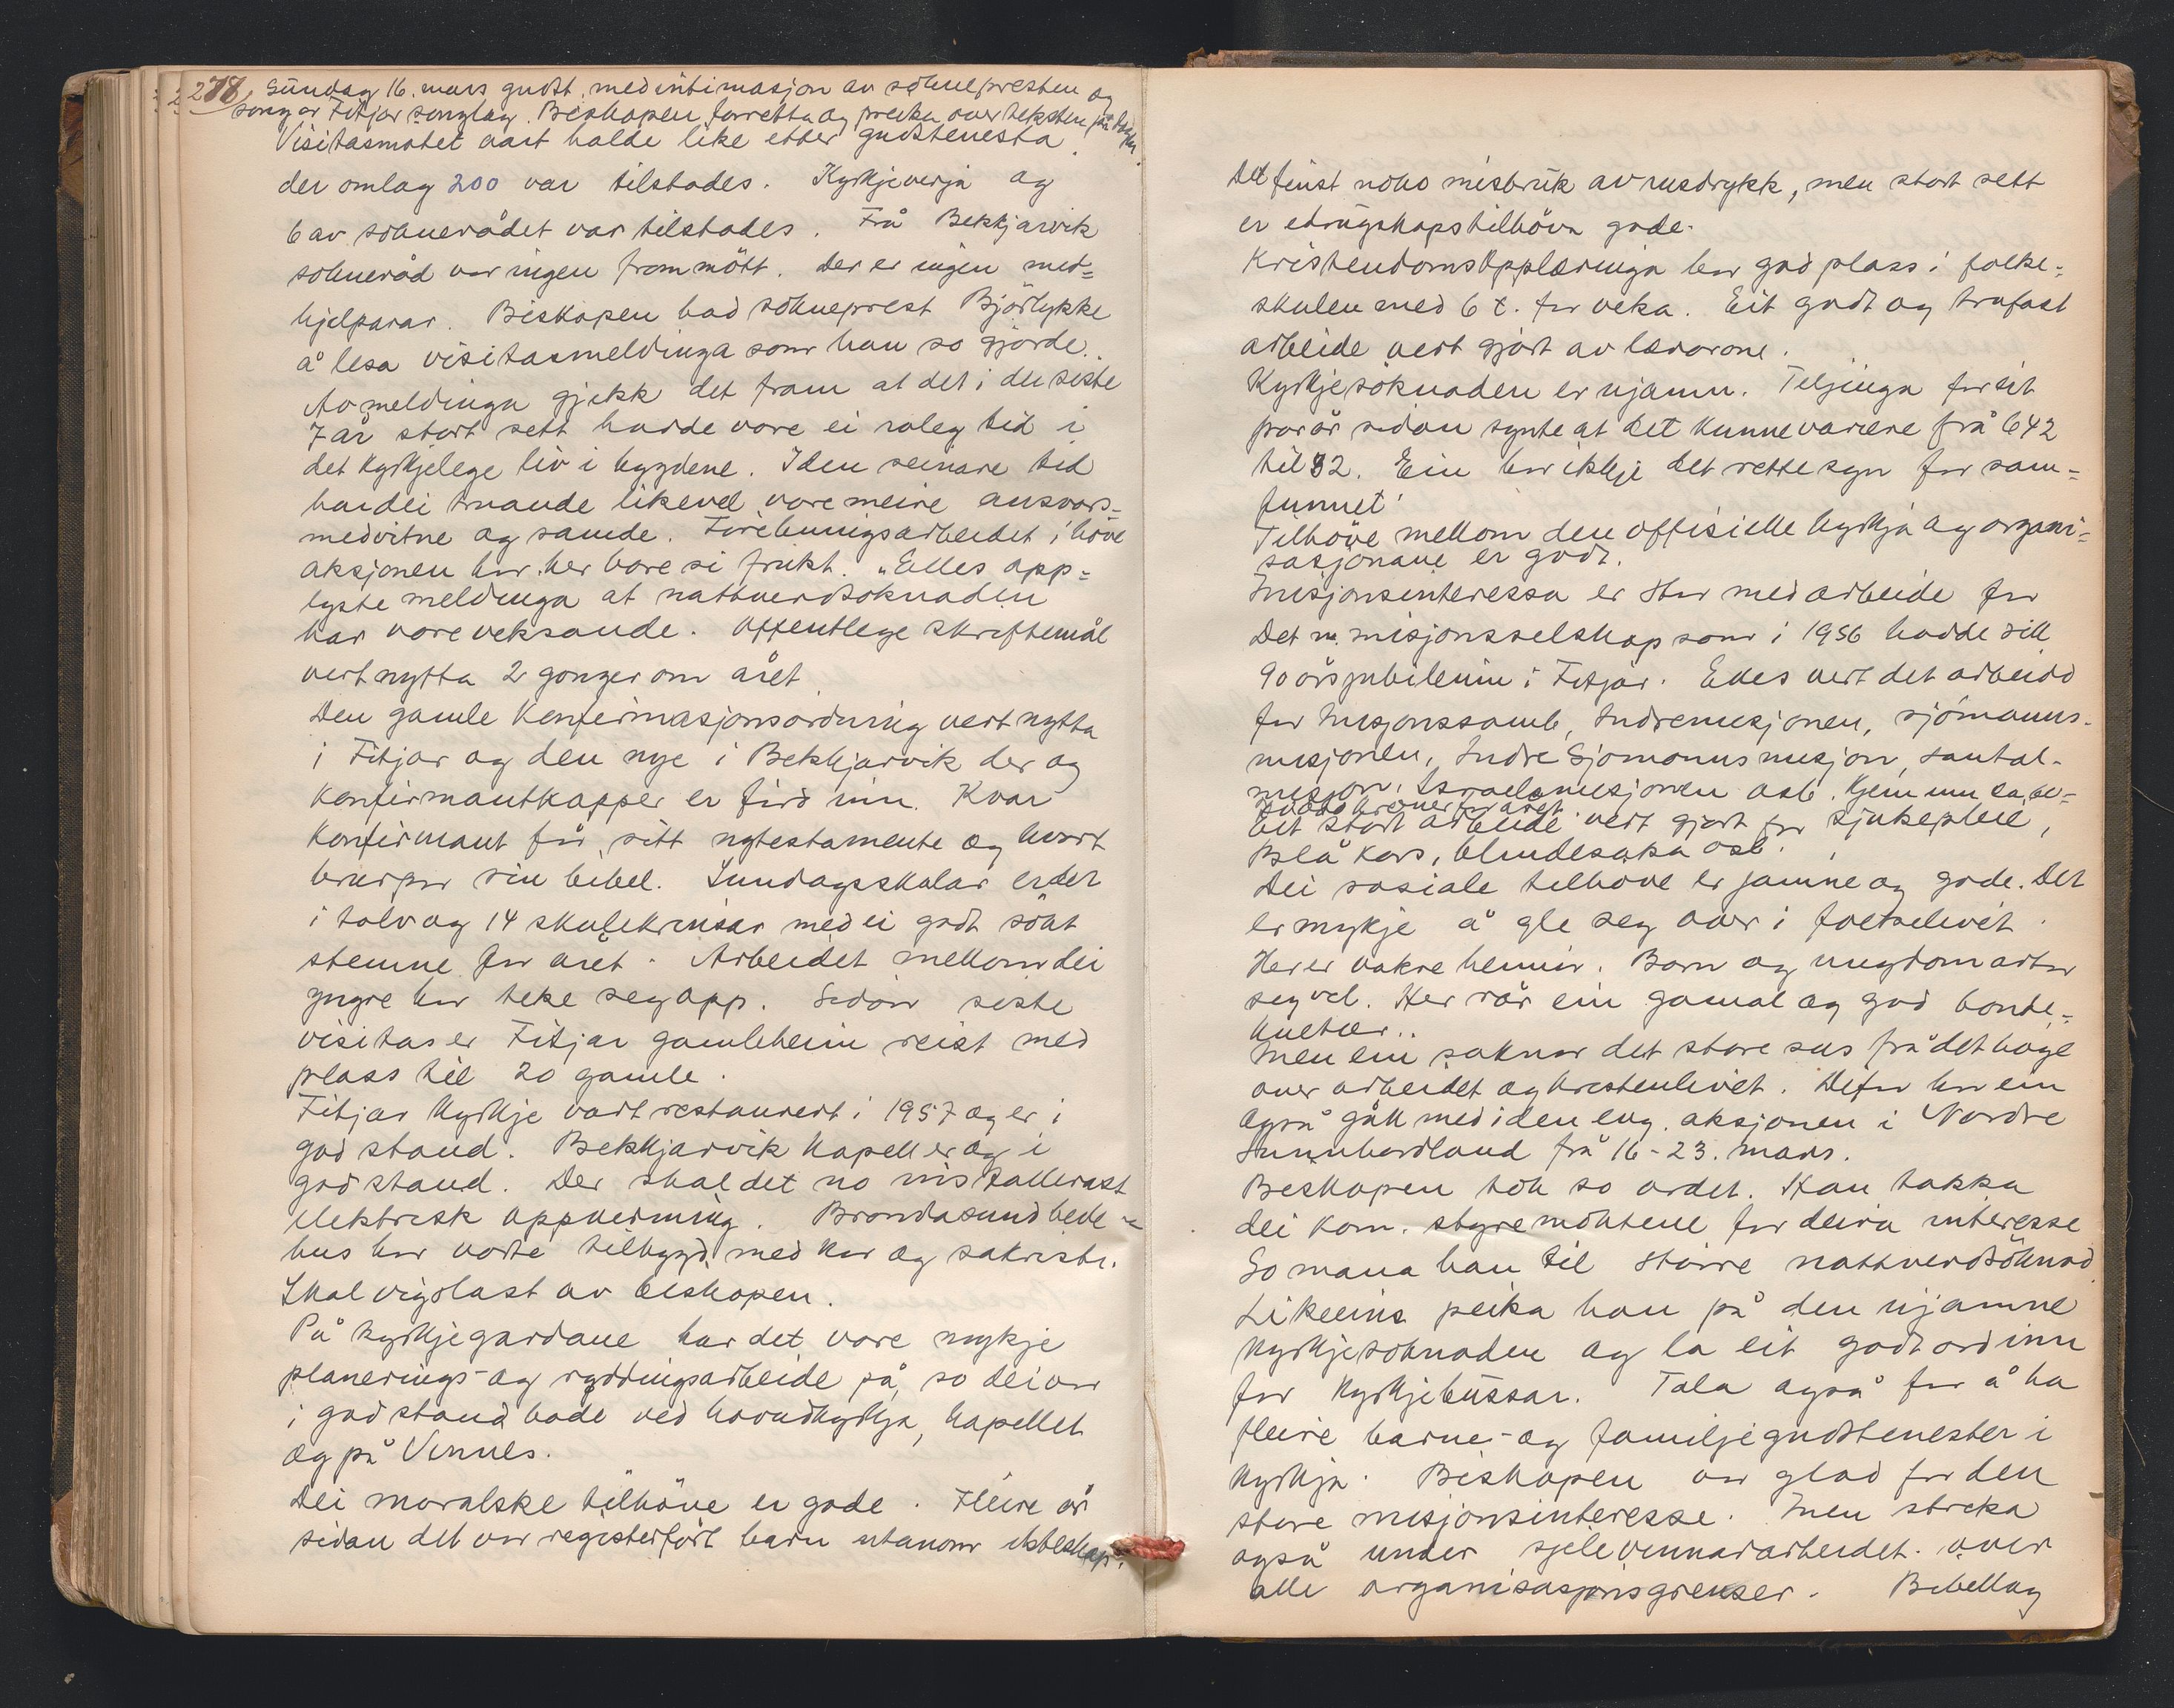 278.
Sundag 16. mars gudst. med intimasjon av soknepresten og
song av Fitjar songlag. Biskopen forretta og preika over teksten på dagen.
Visitasmøtet vart halde like etter gudstenesta
der omlag 200 var tilstades. Kyrkjeverja og
6 av soknerådet var tilstades. Frå Bekkjarvik
sokneråd var ingen frammött. Der er ingen med=
hjelparar. Biskopen bad sokneprest Björlykke
å lesa visitasmeldinga som han so gjorde.
Av meldinga gjekk det fram at det i dei siste
7 år stort sett hadde vore ei roleg tid i
det kyrkjelege liv i bygdene. I den seinare tid
har dei truande likevel vore meire ansvars=
medvitne og samde. Förebuingsarbeidet i höve
aksjonen har her bore si frukt. Elles opp=
lyste meldinga at nattverdsöknaden
har vore veksande. Offentlege skriftemål
vert nytta 2 gonger om året.
Den gamle konfirmasjonsordning vert nytta
i Fitjar og den nye i Bekkjarvik der og
konfirmantkapper erförd inn. Kvar
konfirmant får sitt nytestamente og kvart
brurpar sin bibel. Sundagsskular er der
i tolv og 14 skulekrinsar med ei godt sökt
stemne for året. Arbeidet mellom dei
yngre har teke seg opp. Sidan siste
visitas er Fitjar gamleheim reist med
plass til 20 gamle.
Fitjar kyrkje vart restaurert i 1957 og er i
god stand. Bekkjarvik kapell er og i
god stand. Der skal det no installerast
elektrisk oppvarming. Brandasund bede=
hus har vorte tilbygd med kor og sakristi.
Skal vigslast av biskopen.
På kyrkjegardane har det vore mykje
planerings- og ryddingsarbeide på, so dei var
i god stand både ved hovudkyrkja, kapellet
og på Vinnes.
Dei moralske tilhöve er gode. Fleire år
sidan det var registerfört barn utanom ekteskap.
Det finst noko misbruk av rusdrykk, men stort sett
er edruskapstilhöva gode.
Kristendomsopplæringa har god plass i folke=
skulen med 6 t. for veka. Eit godt og trufast
arbeide vert gjort av lærarane.
Kyrkjesöknaden er ujamn. Teljinga for eit
par år sidan synte at det kunne variere frå 642
til 32. Ein har ikkje det rette syn for sam=
funnet!
Tilhöve mellom den offisielle kyrkja og organi=
sasjonane er godt.
Misjonsinteressa er stor med arbeide for
Det n. misjonsselskap som i 1956 hadde sitt
90 årsjubileum i Fitjar. Elles vert det arbeidd
for Misjonssamb, Indremisjonen, sjömanns-
misjonen, Indre Sjömannsmisjon, Santal-
misjon, Israelsmisjonen osb. Kjem inn ca.
kroner for året.
Eit stort arbeide vert gjort for sjukepleie,
Blå Kors, blindesaka osb.
Dei sosiale tilhöve er jamne og gode. Det
er mykje å gle seg over i folkelivet.
Her er vakre heimar. Born og ungdom artar
seg vel. Her rår ein gamal og god bonde=
kultur..
Men ein saknar det store sus frå det höge
over arbeidet og kristenlivet. Difor har ein
også gått med i den evg. aksjonen i Nordre
Sunnhordland frå 16-23. mars.
Biskopen tok so ordet. Han takka
dei kom. styremaktene for deira interesse
So mana han til större nattverdsöknad.
Likeeins peika han på den ujamne
kyrkjesöknaden og la eit godt ord inn
for kyrkjebussar. Tala også for å ha
fleire barne- og familiegudstenester i
kyrkja. Biskopen var glad for den
store misjonsinteresse. Men streka
også under sjelevinnararbeidet over
alle organisasjonsgrenser. Bibellag